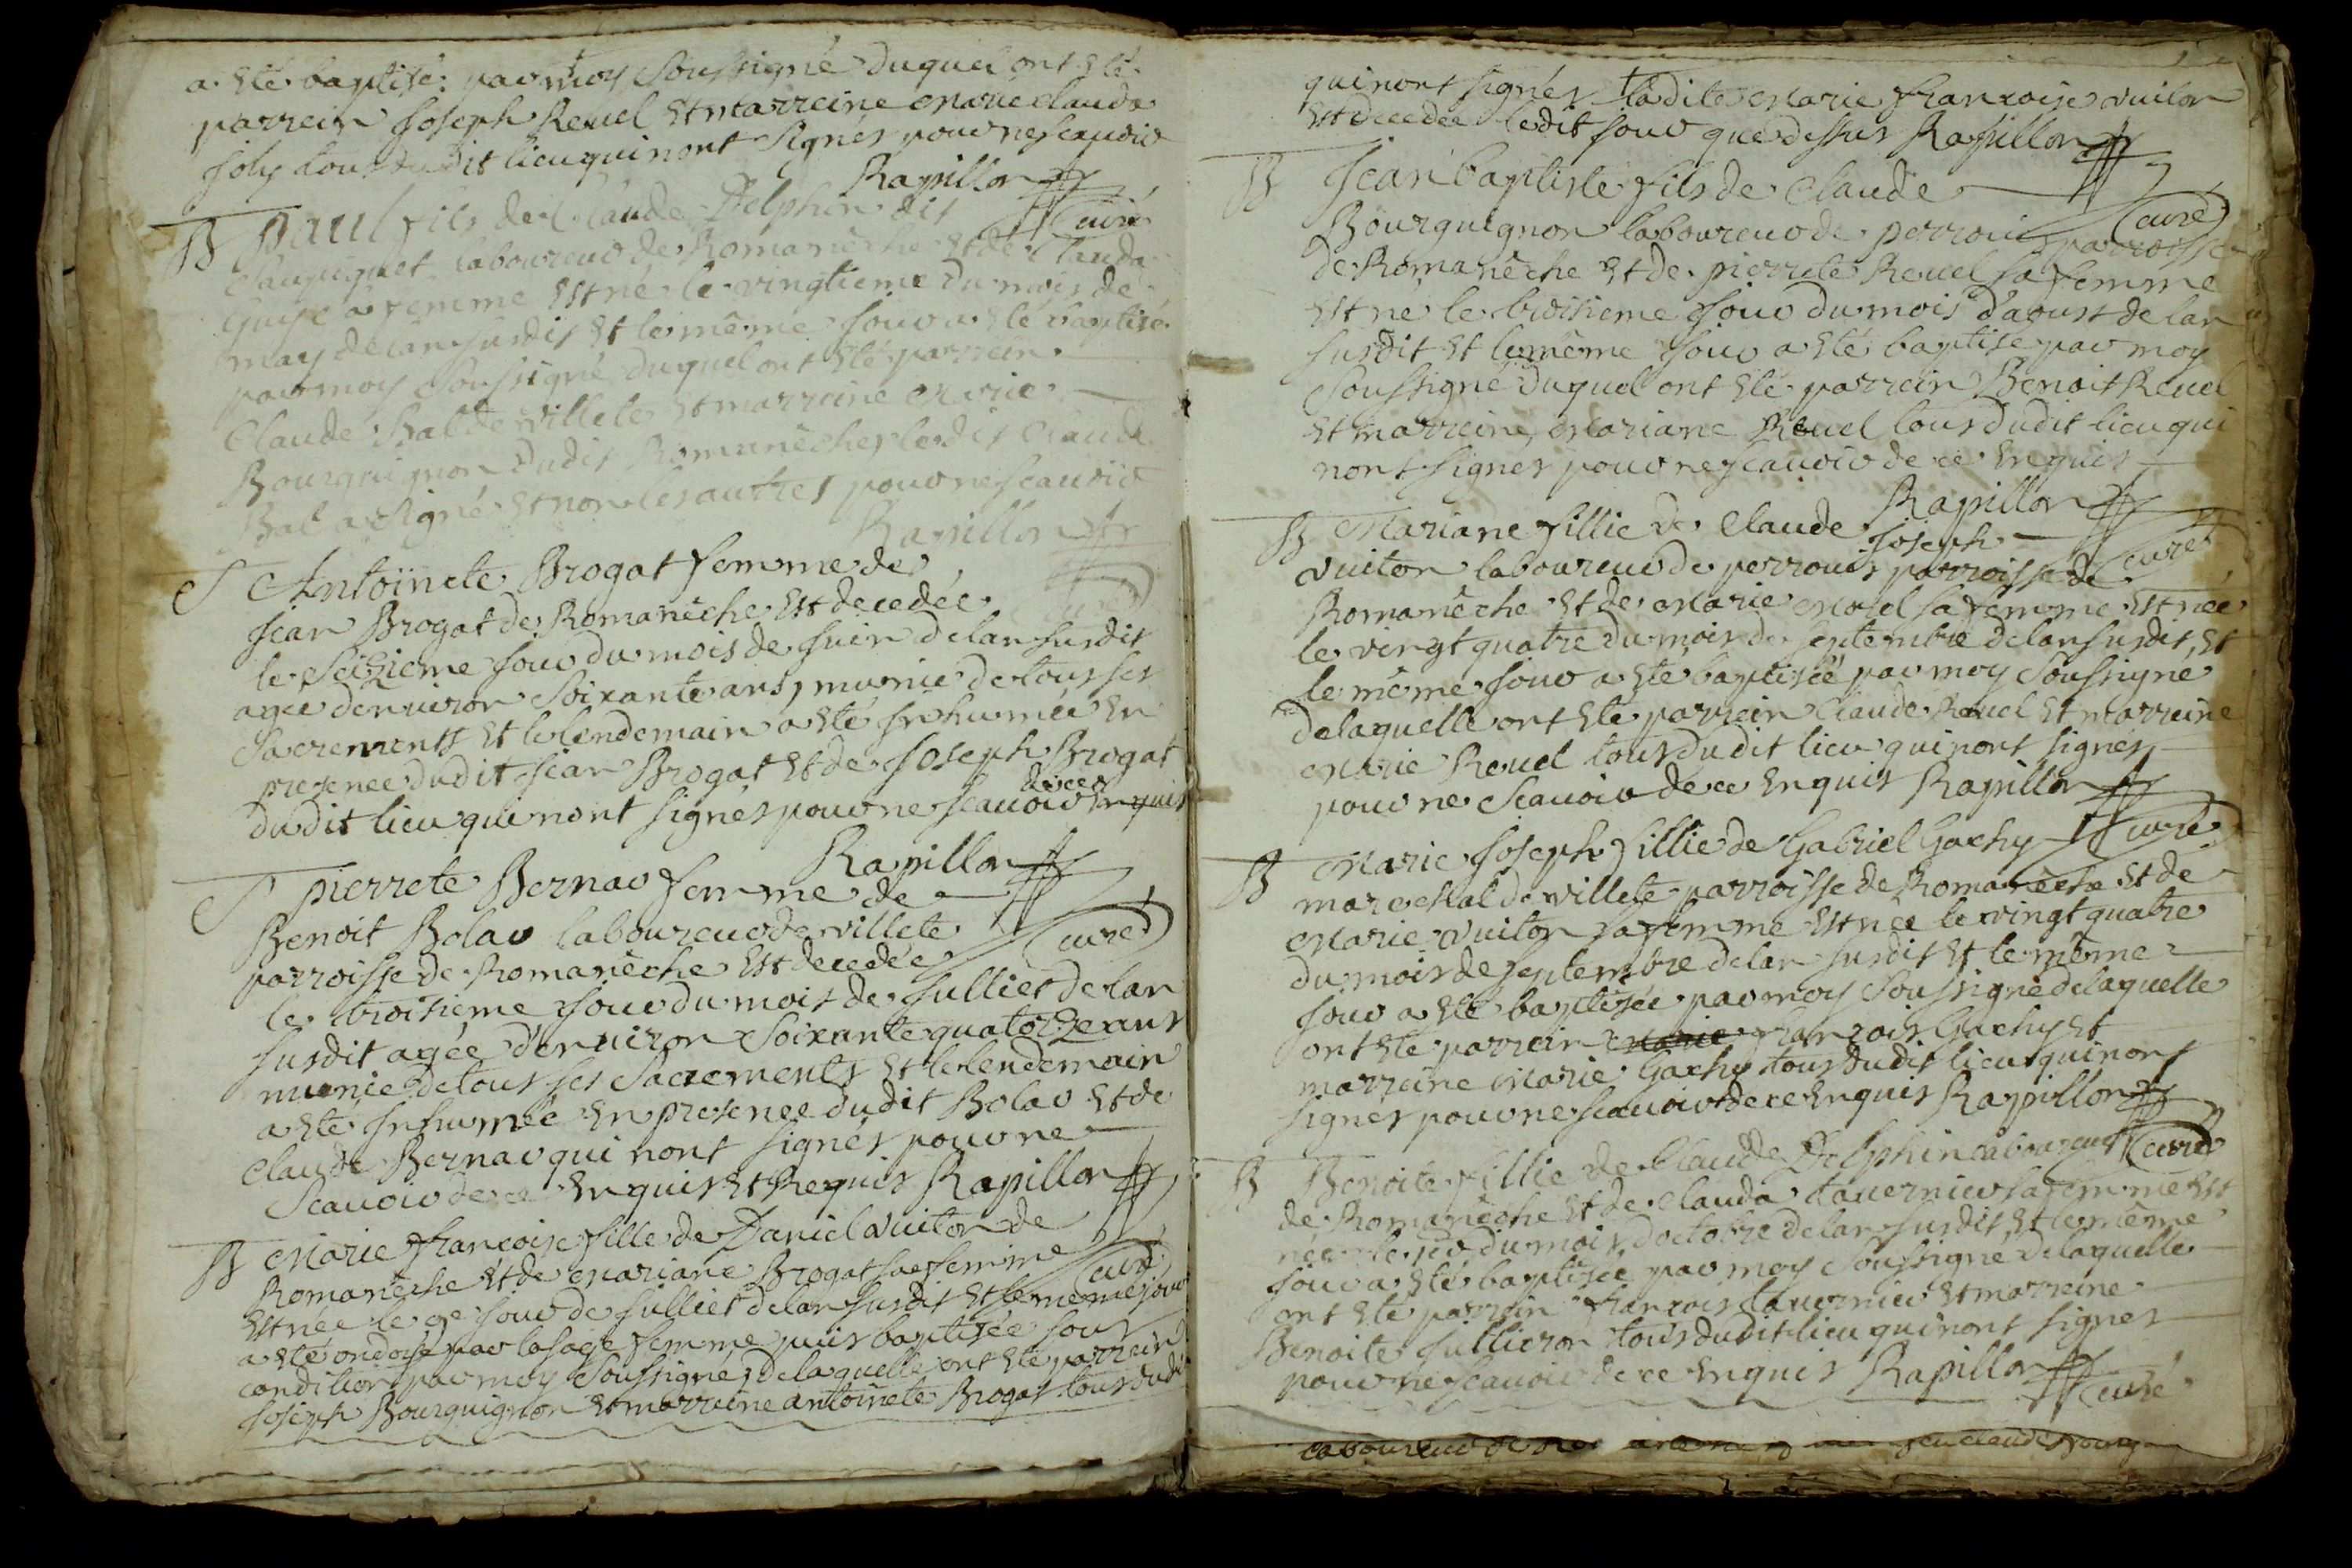 a esté baptisé par moy soussigné duquel ont esté
parrein Joseph Revel et marreine marie claude
Joly tous dudit lieu qui nont signés pour ne scavoir
Rapillon
curé
B Paul fils de Claude Delphin dit
laboureur de Romanêche et de Clauda
femme est né le vingtieme du mois de
may de lan susdit et le même jour a esté baptisé
par moy soussigné duquel ont esté parrein
Claude Bal de villete et marreine marie
Bourguignon dudit Romanêche ledit claude
Bal a signé et non les autres pour ne scavoir
Rapillon
curé
S Antoinete Brogat femme de
Jean Brogat de Romanêche est decedée
le seizieme jour du mois de juin de lan susdit
agée denviron soixante ans, munie de tous ses
sacrements et le lendemain a esté inhumée en
presence dudit jean Brogat et de Joseph Brogat
dudit lieu qui nont signés pour ne scavoir de ce enquis
Rapillon
curé
S pierrete Bernar femme de
Benoit Bolar laboureur de villete
parroisse de Romanêche est decedée
le troisieme jour du mois de julliet de lan
susdit agée denviron soixante quatorze ans
munie de tous ses sacrements et le lendemain
a esté inhumée en presence dudit Bolar et de
claude Bernar qui nont signés pour ne
scavoir de ce enquis et Requis Rapillon
curé
B Marie françoise fille de Daniel vuiton de
Romanêche et de mariane Brogat sa femme
est née le 9e jour de julliet de lan susdit et le même jour
a esté ondoyé par la sage femme puis baptisée sous
condition par moy soussigné, delaquelle ont esté parrein
Joseph Bourguignon et marreine antoinete Brogat tous dudit
qui nont signés ladite marie françoise vuiton
est decedée ledit jour que dessus Rapillon
curé
B Jean baptiste fils de Claude
Bourguignon laboureur de perroux parroisse
de Romanêche et de pierrete Revel sa femme
est né le troisieme jour du mois d'aoust de lan
susdit et le même jour a esté baptisé par moy
soussigné duquel ont esté parrein Benoit Revel
et marreine mariane Revel tous dudit lieu qui
nont signés pour ne scavoir de ce enquis
Rapillon
curé
B Mariane fillie de Claude Joseph
vuiton laboureur de perroux parroisse de
Romanêche et de marie morel sa femme est née
le vingt quatre du mois de septembre de lan susdit, et
le même jour a esté baptisée par moy soussigné
delaquelle ont esté parrein Claude Revel et marreine
marie Revel tous dudit lieu qui nont signés
pour ne scavoir de ce enquis Rapillon
curé
B Marie Joseph fillie de Gabriel Gachy
marechal de villete parroisse de Romanêche et de
marie vuiton sa femme est née le vingt quatre
du mois de septembre de lan susdit et le même
jour a esté baptisée par moy soussigné delaquelle
ont esté parrein marie françois Gachy et
marreine marie Gachy tous dudit lieu qui nont
signés pour ne scavoir de ce enquis Rapillon
curé
B Benoite fillie de Claude Delphin laboureur
de Romanêche et de clauda tavernier sa femme est
née le du mois doctobre de lan susdit et le même
jour a esté baptisée par moy soussigné delaquelle
ont esté parrein françois tavernier et marreine
Benoite jullieron tous dudit lieu qui nont signés
pour ne scavoir de ce enquis Rapillon
curé
laboureur de feu claude